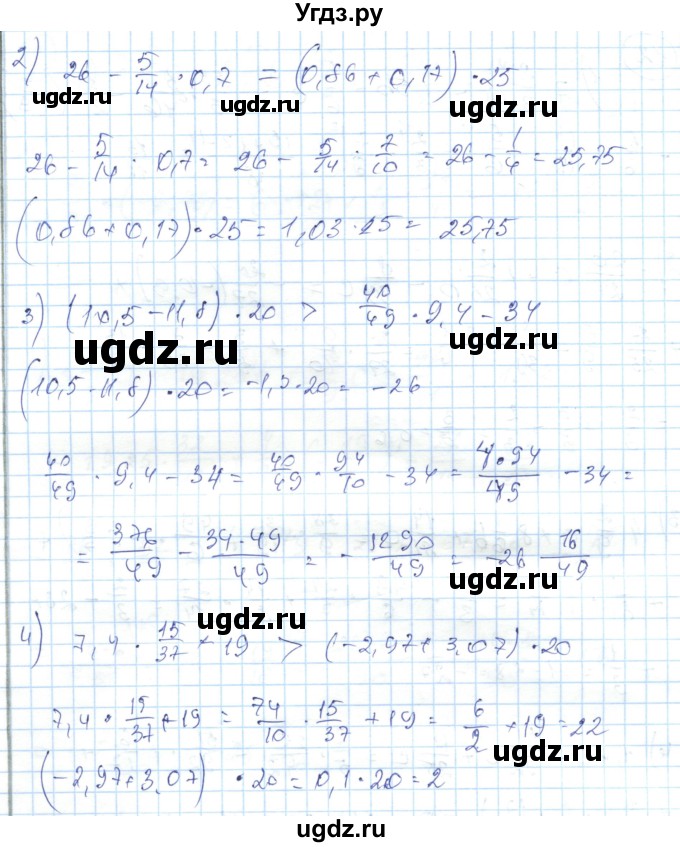 Угдз.ру
2) 26 - 5/14 · 0,7 = (0,86 + 0,17) · 25
ugdz.ru ugdz.ru ugdz.ru
26 - 5/14 · 0,7 = 26 - 5/14 · 7/10 = 26 - 1/4 = 25,75
(0,86 + 0,17) · 25 = 1,03 · 25 = 25,75
3) (10,5 - 11,8) · 20 > 40/49 · 9,4 - 34
ugdz.ru ugdz.ru
(10,5 - 11,8) · 20 = -1,3 · 20 = -26
40/49 · 9,4 - 34 = 40/49 · 94/10 - 34 = 4·94/49 - 34 =
ugdz.ru
= 376/49 - 34·49/49 = - 1290/49 = -26 16/49
ugdz.ru ugdz.ru
4) 7,4 · 15/37 + 19 > (-2,97 + 3,07) · 20
ugdz.ru ugdz.ru
7,4 · 15/37 + 19 = 74/10 · 15/37 + 19 = 6/2 + 19 = 22
(-2,97 + 3,07) · 20 = 0,1 · 20 = 2
ugdz.ru ugdz.ru
ugdz.ru